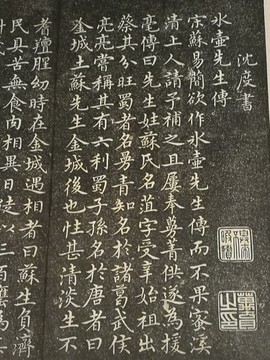 沈度書
氷壺先生傳
宋蘇易簡欲作氷壺先生傳而不果蜜
清上人請予補之且屢奉菁供遂為援
毫傳曰先生姓蘇氏名道字受辛始祖出
蔡其公旺蜀者名蔓青知名於諸葛武侯
亮亮常稱其有六利蜀子孫名於唐者曰
金城土蘇先生金城後也性甚清淡生不
者膻腥幼時在金城遇相者曰蘇生負濟
民具苦無食肉相異日徒以三百甕為